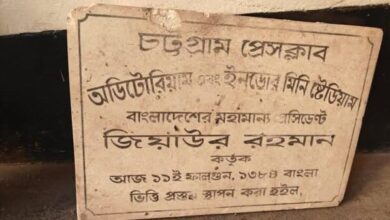 চট্টগ্রাম প্রেসক্লাব
অডিটোরিয়াম এবং ইনডোর মিনি ষ্টেডিয়াম
বাংলাদেশের মহামান্য প্রেসিডেন্ট
জিয়াউর রহমান
কর্তৃক
আজ ১১ই ফালগুন, ১৩৮৪ বাংলা
ভিত্তি প্রস্তর স্থাপন করা হইল,